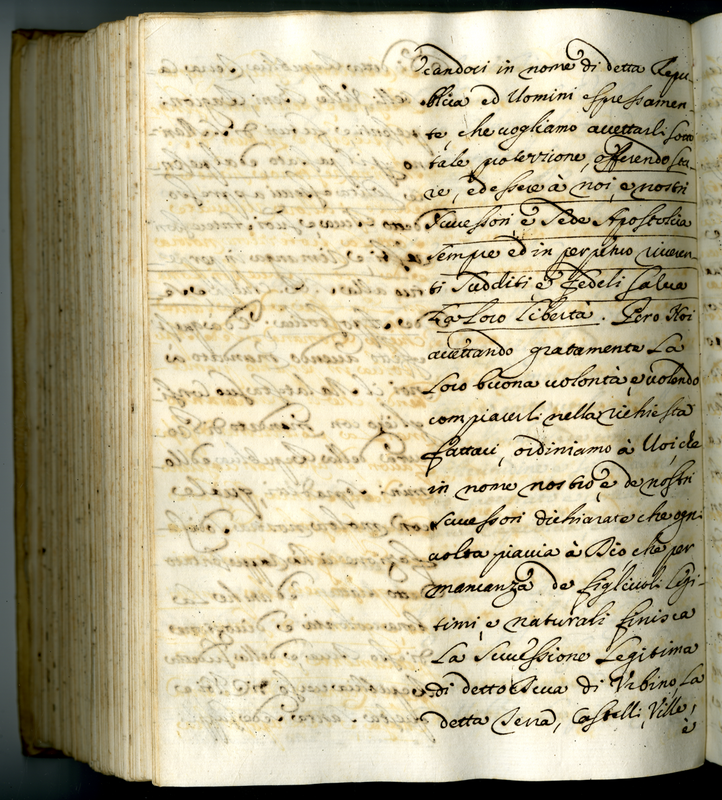 candoci in nome di detta Repu-
blica ed Uomini espressamen
te, che vogliamo accettarli sotto
tale protezzione, offerendo sta-
re, ed essere à noi, e nostri
Successori, e Sede Apostolica
sempre ed in perpetuo riveren-
ti Sudditi e Fedeli salva
La Loro Libertà. Però Noi
accettando gratamente La
Loro buona volontà e volendo
compiacerli nella richiesta
fattaci, ordiniamo à Voi, che
in nome nostro e de nostri
successori dichiarate che ogni
volta piacia à Dio che per
mancanza de figlivoli Legi-
timi e naturali finisca
La Successione Legitima
di detto Duca di Urbino La
detta Terra, Castelli, Ville,
e